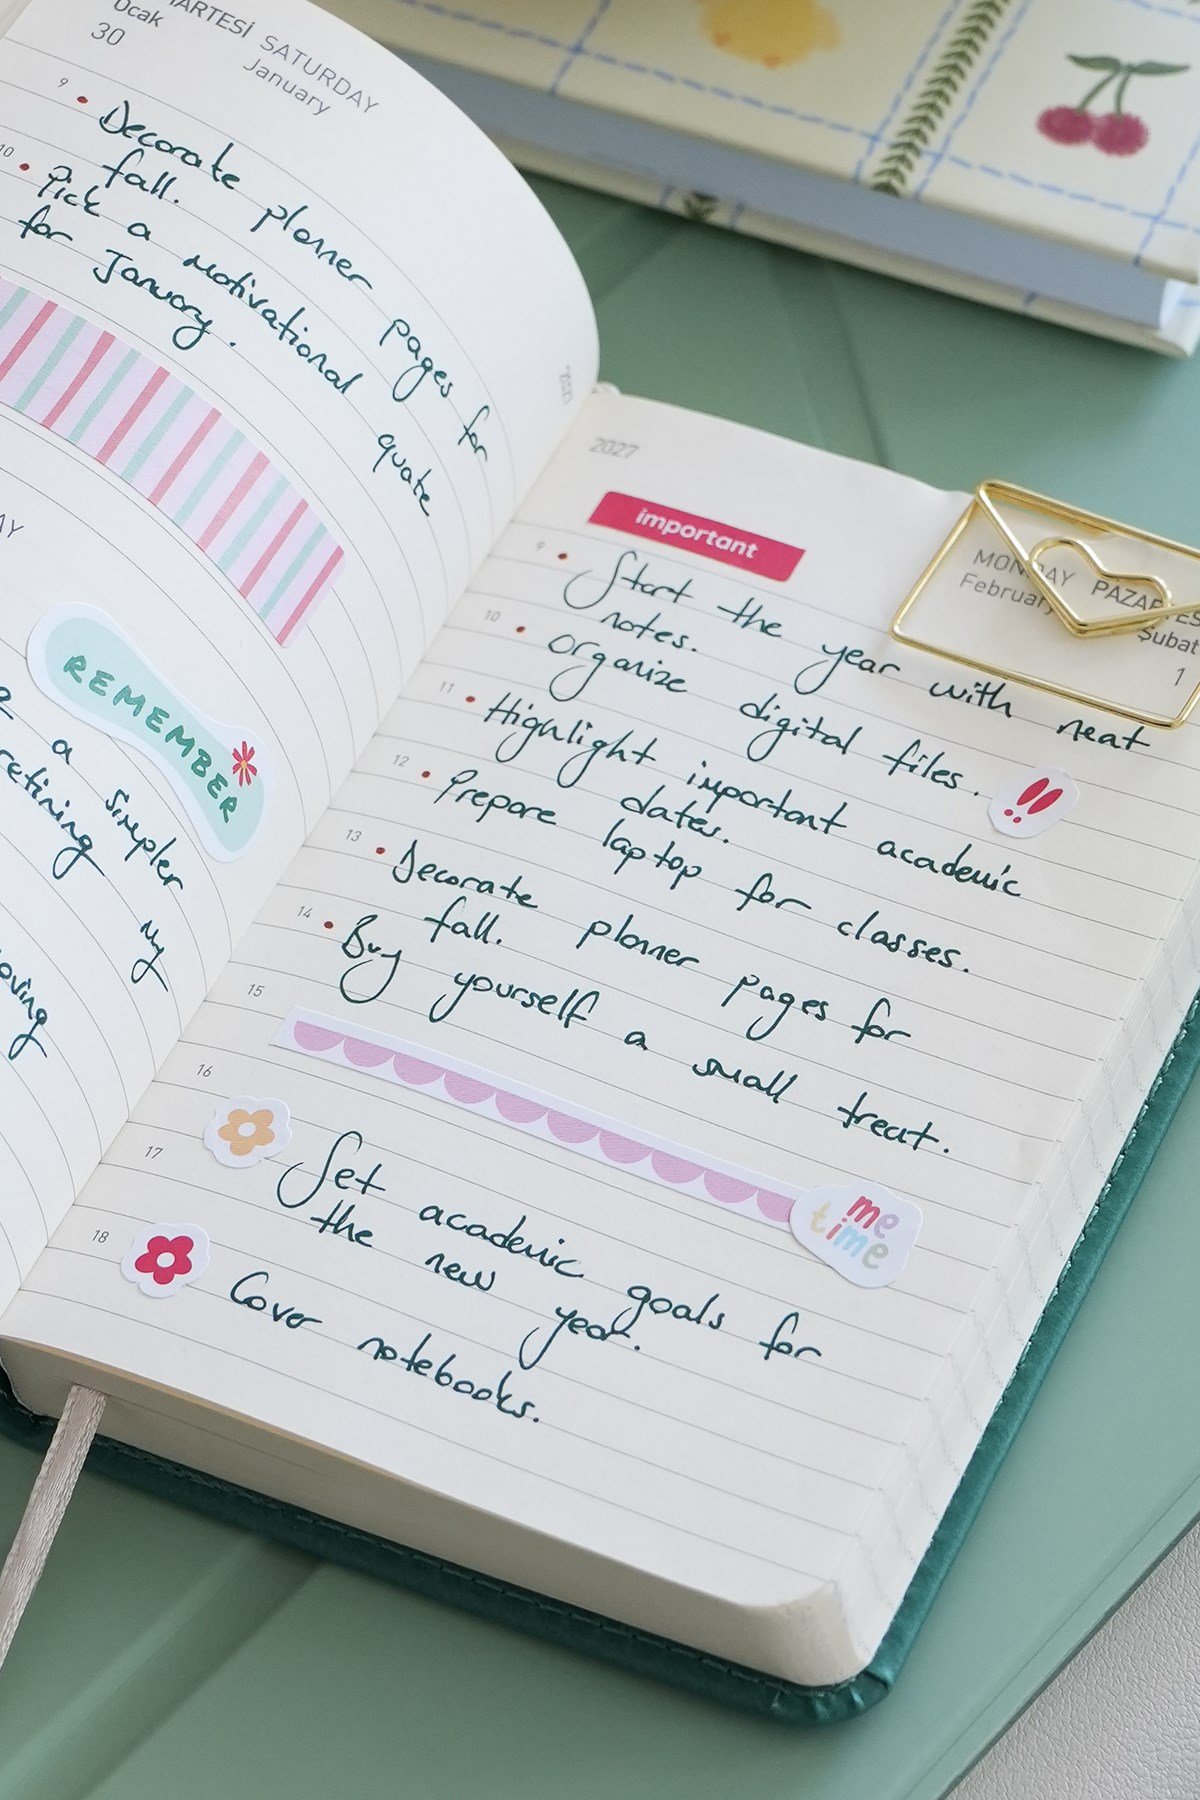 MARTESİ SATURDAY
Ocak January
30
9 • Decorate planner pages for
fall.
10 • Pick a motivational quate
for January.
REMEMBER
a simpler
my
2027
important
MONDAY PAZARTESİ
February Şubat
1
9 • Start the year with neat
notes.
10 • Organize digital files.
!!
11 • Highlight important academic
dates.
12 • Prepare laptop for classes.
13 • Decorate planner pages for
fall.
14 • Buy yourself a small treat.
15
16
me
time
17 Set academic goals for
the new year.
18 Cover notebooks.